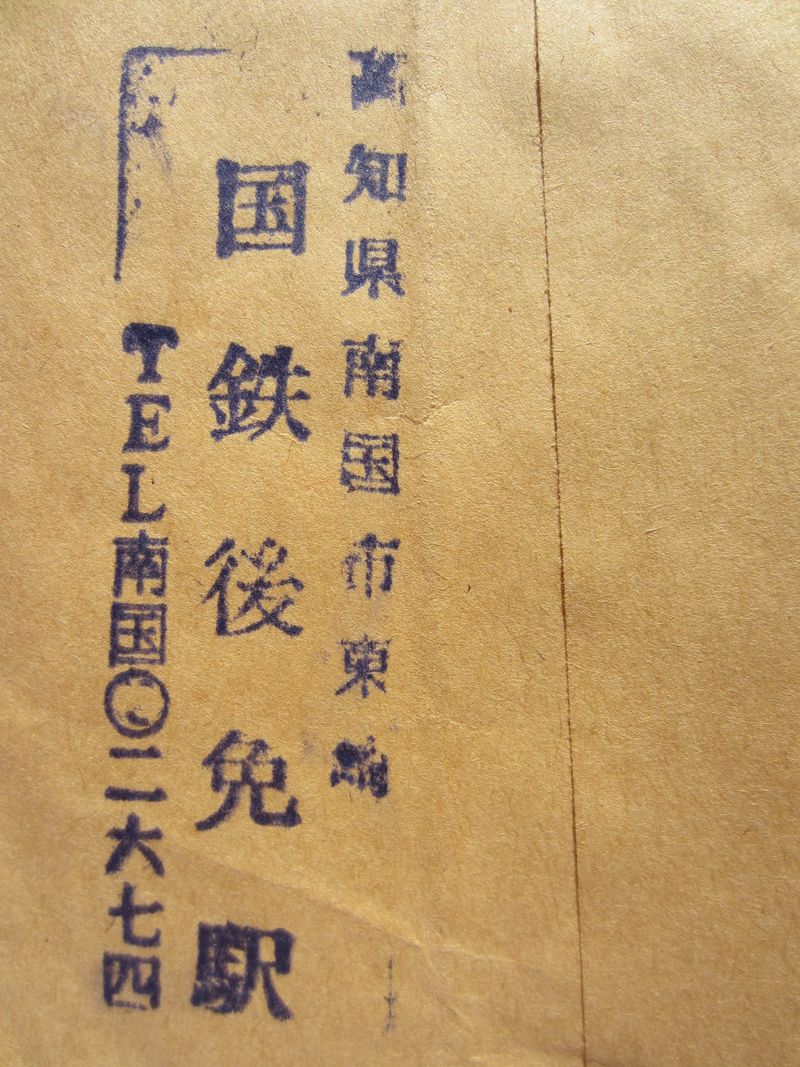 高知県南国市東崎
国鉄後免駅
TEL南国〇二六七四